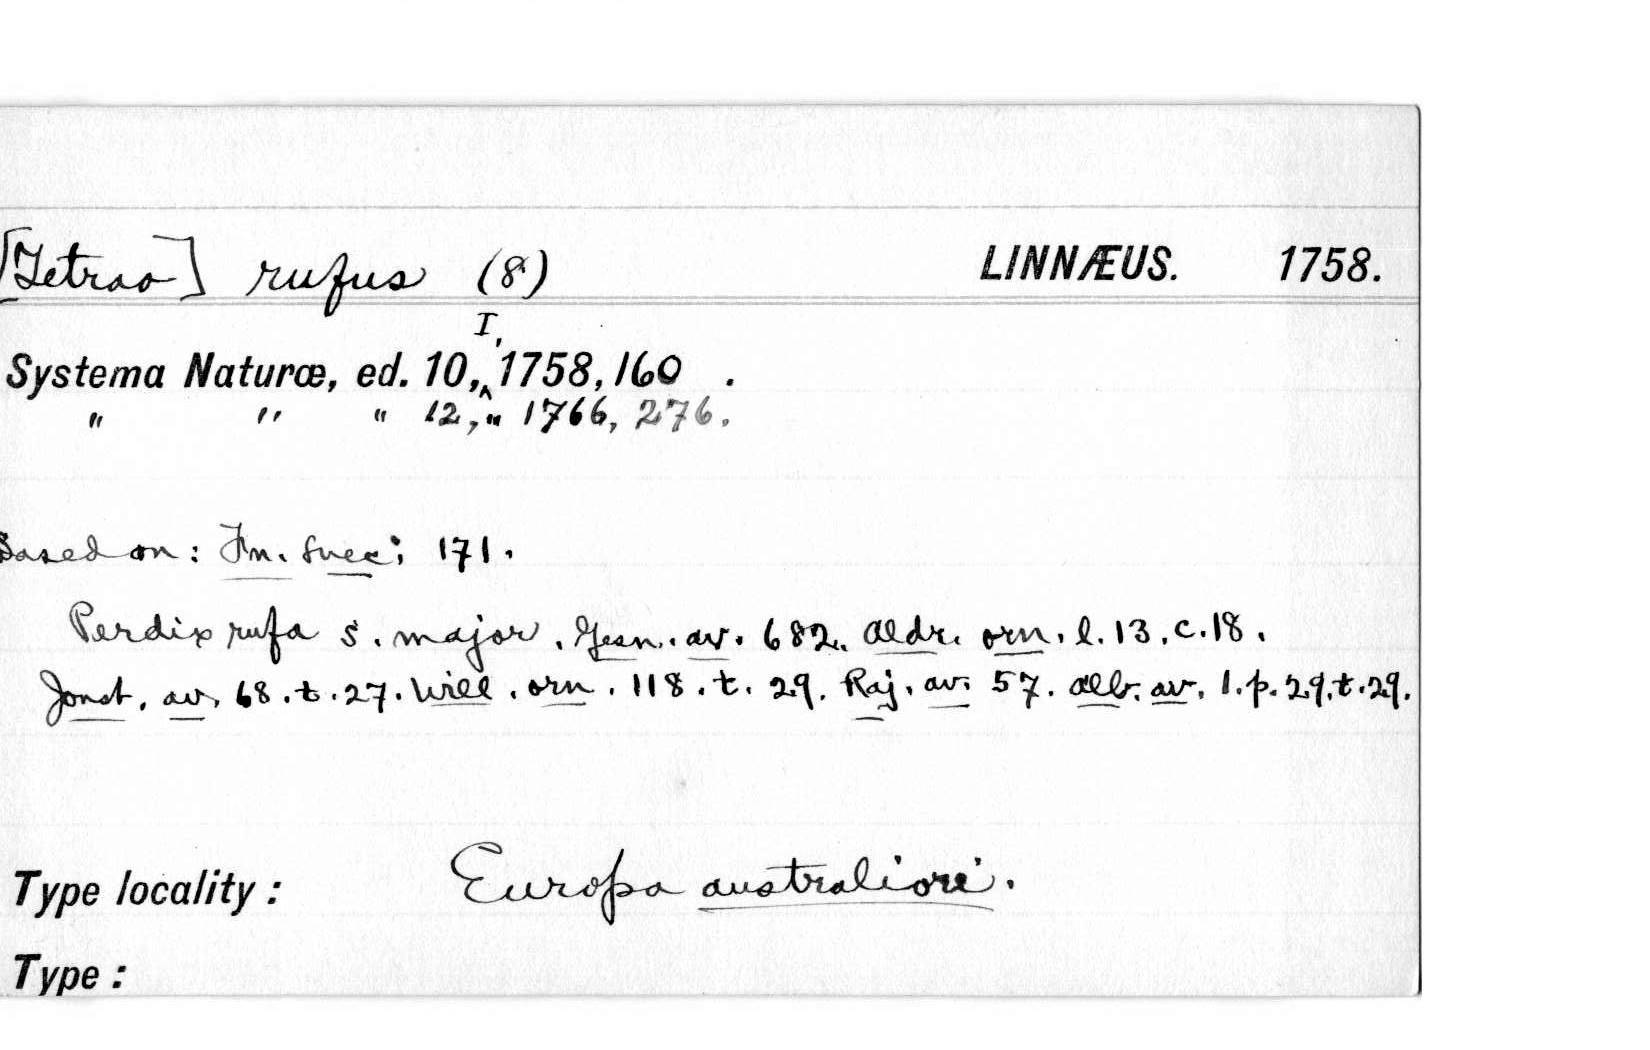 [Tetrao] rufus (8) LINNÆUS. 1758.
I,
Systema Naturæ, ed. 10,^ 1758, 160 .
" " " 12, " 1766, 276.
Based on: Fn. Svec; 171.
Perdix rufa s. major. Gesn. av. 682. Aldr. orn. l. 13. c. 18.
Jonst. av. 68. t. 27. Will. orn. 118. t. 29. Raj. av. 57. alb. av. 1. p. 29. t. 29.
Type locality: Europa australiori.
Type: